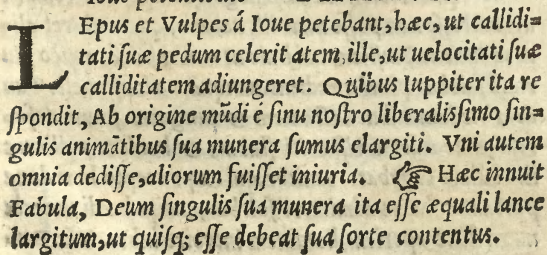 LEpus et Vulpes á Ioue petebant, hæc, ut callidi=
tati suæ pedum celeritatem, ille, ut uelocitati suæ
calliditatem adiungeret. Quibus Iuppiter ita re
spondit, Ab origine mūdi e sinu nostro liberalissimo sin=
gulis animātibus sua munera sumus elargiti. Vni autem
omnia dedisse, aliorum fuisset iniuria. ☞ Hæc innuit
Fabula, Deum singulis sua munera ita esse æquali lance
largitum, ut quisq; esse debeat sua sorte contentus.